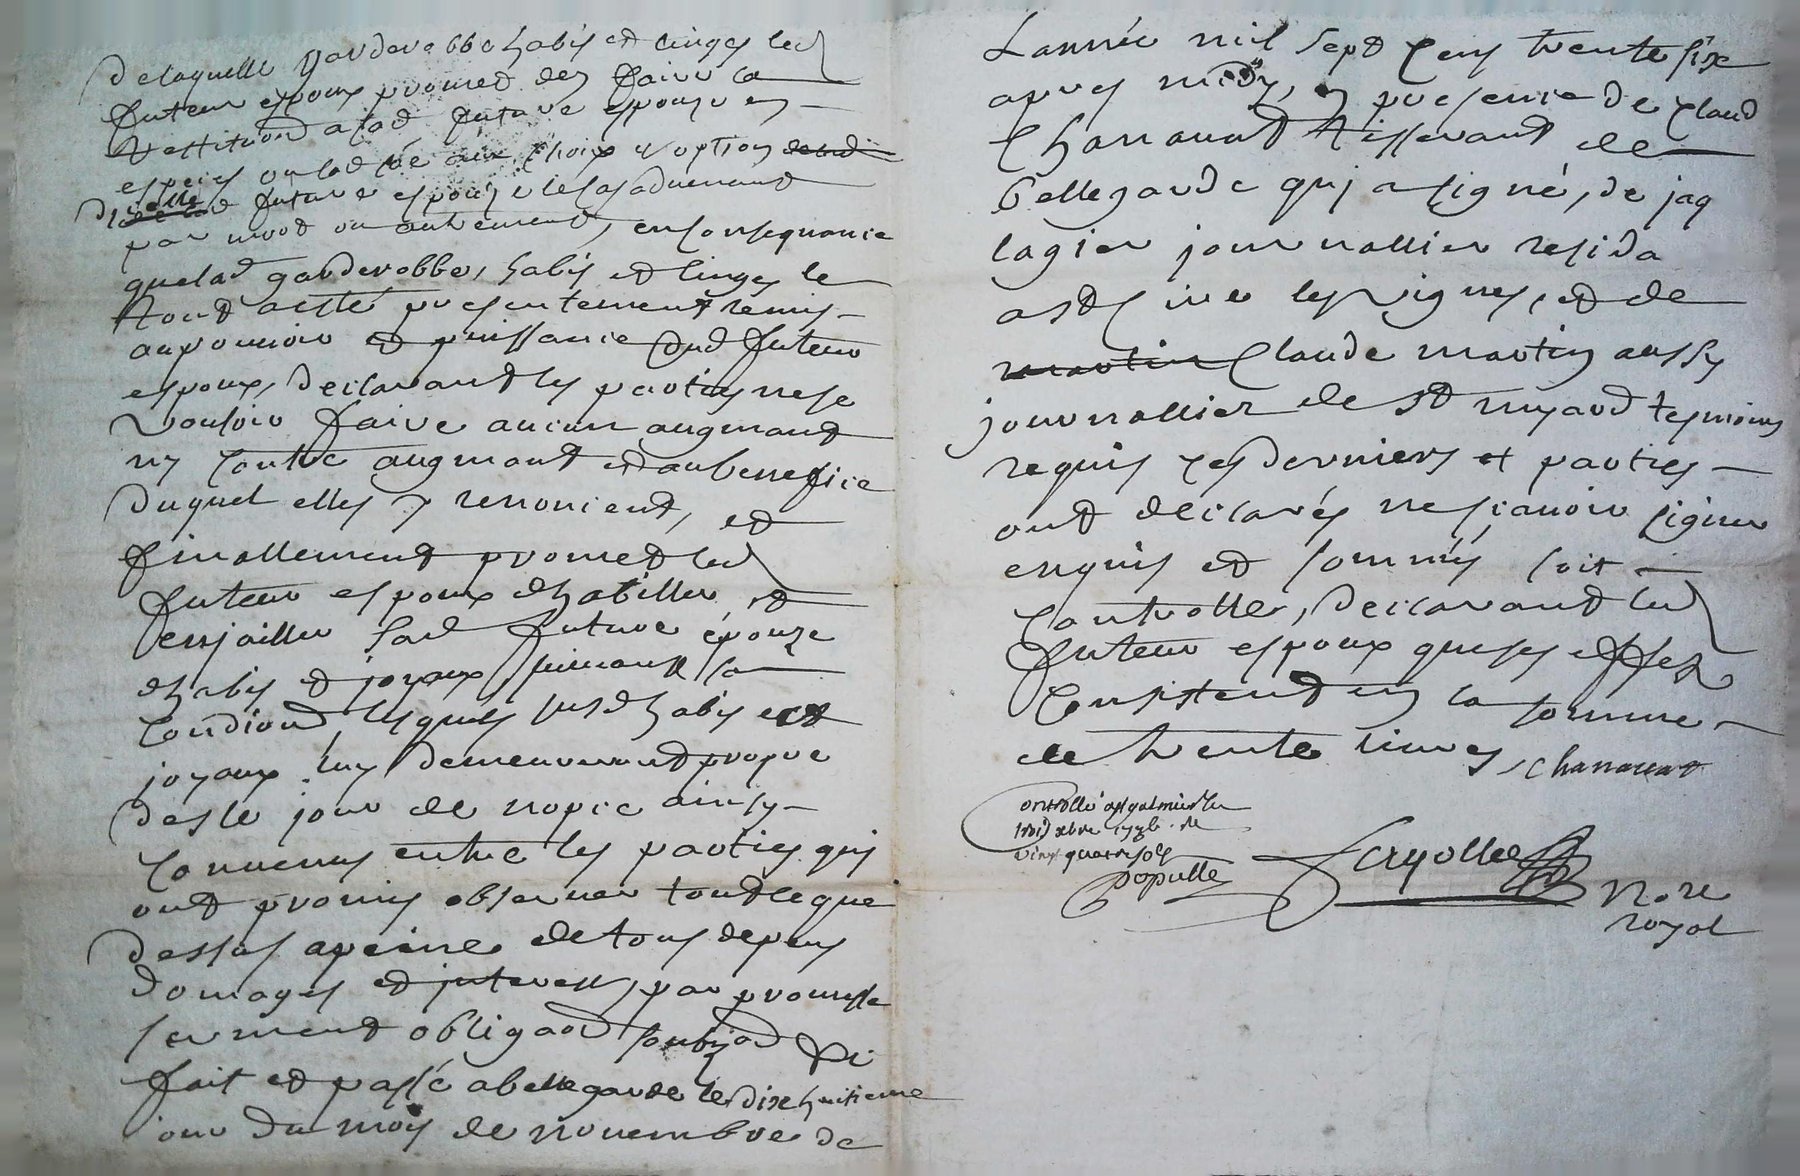 delaquelle garderobbe habis et linges led
futeur espoux promet den faire la
restitution a lad future espouse en
especes ou lad au choix et option
dicelle future espouze le cas advenant
par mord ou autrement, en consequance
que lad garderobbe, habis et linges le
tout a esté presentement remis
au pouvoir et puissance dud futeur
espoux, declarant les parties ne se
vouloir faire aucun augmant
ny contre augmant et au beneffice
duquel elles y renoncent, et
finallement promet led
futeur espoux dhabiller et
enjailler sad future épouze
dhabis et joyaux suivant sa
condiond, lesquels susd habis et
joyaux luy demeureront propre
des le jour de nopce ainsy
convenus entre les parties quy
ont promis observer tout le que
dessus a peine de tous depens
domages et interest, par promesse
serment obligaon soubzon
fait et passé a bellegarde le dixhuitieme
jour du mois de novembre de
Lannée mil sept cens trente six
apres midy, en presence de Claud
Charrouat tisserant de
bellegarde quj a signé, de jaq
lagier journallier resida
a st cire les vignes, et de
martin Claude martin aussy
journallier de st myard tesmoins
requis ces derniers et parties
ont declarés ne sçavoir signer
enquis et sommés soit
controllé, declarant led
futeur espoux que ses effets
consistent en la somme
de trente livres, Charrouat
Controllé a st galmier le
trois xbre 1736. Re
vingt quatre sols
popullé
fayolle Nore
royal